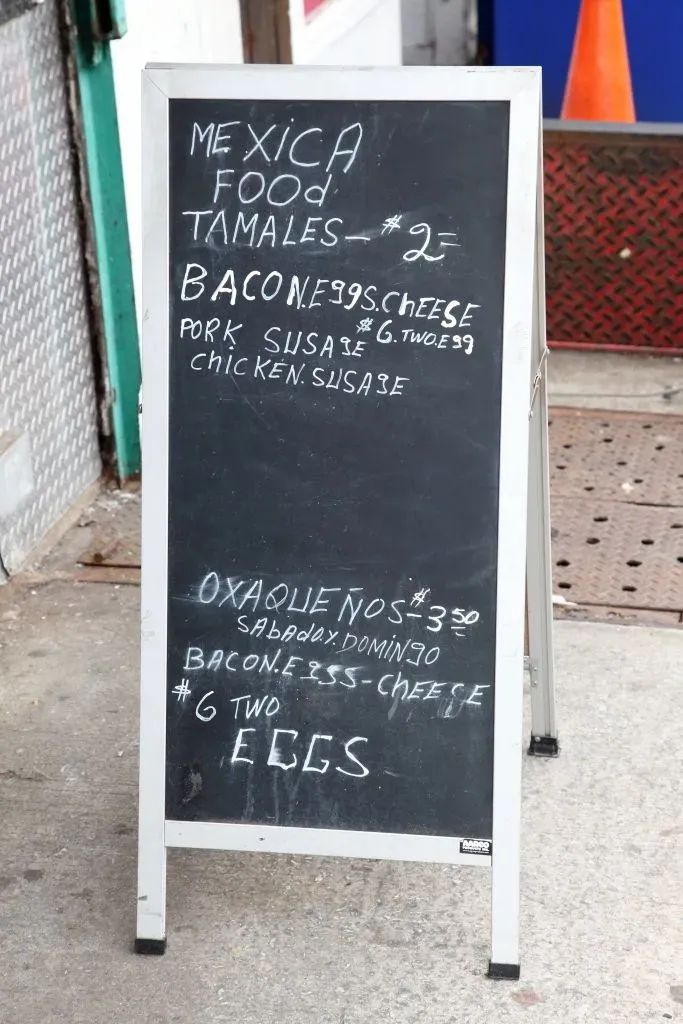 MEXICA
FOOd
TAMALES- $2=
BACON.E99S.ChEESE
PORK SUSA9E $6.TWO.E99
ChICKEN.SUSA9E
OXAQUEÑOS-$3 50
SAbAdOY.DOMIN9O
BACON.E9SS-ChEESE
$6 TWO
EGGS